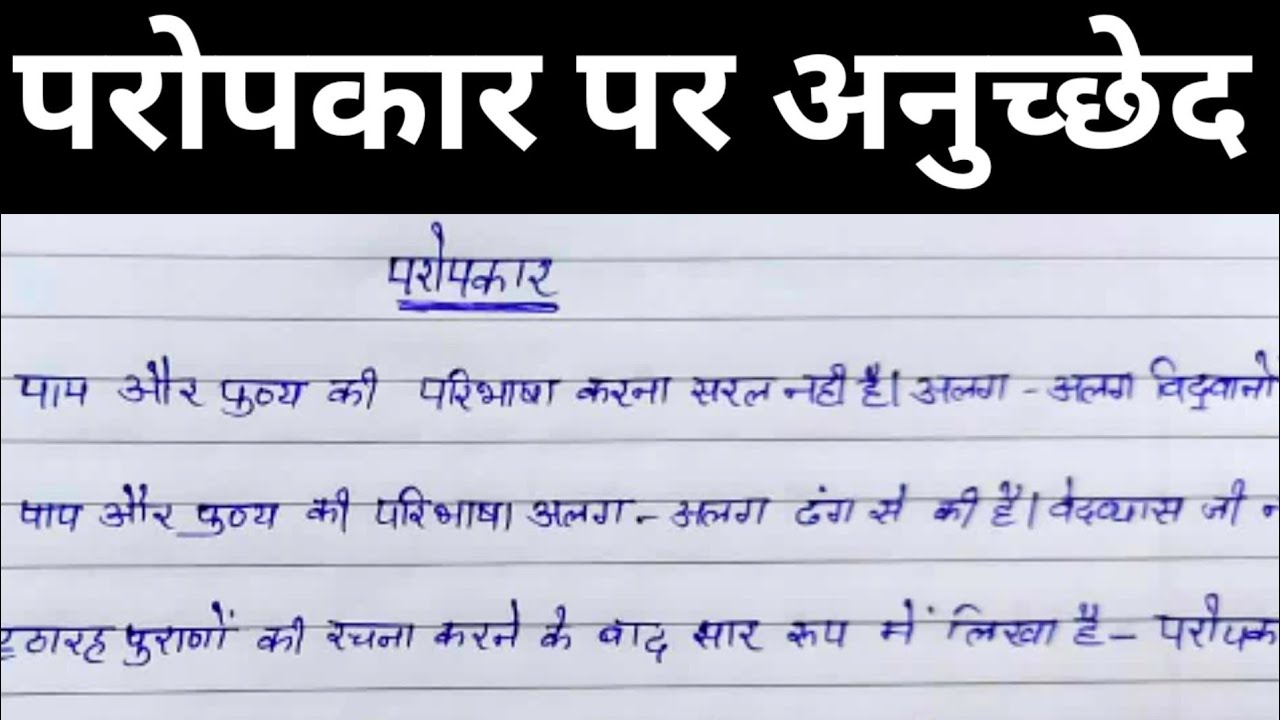 परोपकार पर अनुच्छेद
परोपकार
पाप और पुण्य की परिभाषा करना सरल नही है। अलग - अलग विद्वानो
पाप और पुण्य की परिभाषा अलग - अलग ढंग से की है। वेदव्यास जी न
ट्ठारह पुराणों की रचना करने के बाद सार रूप में लिखा है - परोपक